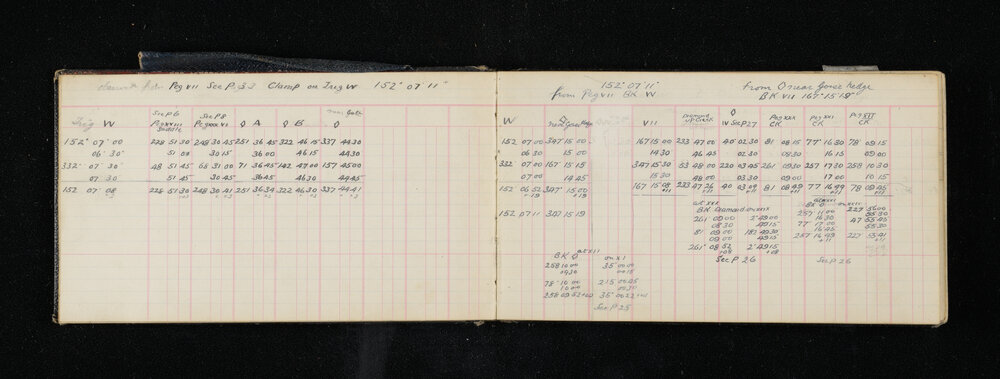 Peg VII See P. 33 Clamp on Trig W 152° 07' 11"
See P 6 See P 8 near Gate
Trig W Peg XXIII Saddle Peg XXXVI ◊ A ◊ B ◊
152° 07' 00 228 51 30 248 30 45 251 36 45 322 46 15 337 44 30
06' 30" 51 08 30 15 36 00 46 15 44 30
332 07' 30" 48 51 45 68 31 00 71 36 45 142 47 00 157 45 00
07 30 51 45 30 45 36 30 46 30 44 45
152 07' 08 228 51 30 248 30 41 251 36 34 322 46 30 337 44 41
152° 07' 11"
from Peg VII BK W
W
152 07 00 347 15 00
06 30 15 00
332 07 00 167 15 15
07 00 14 45
152 06 52 347 15 00
+19 +19
152 07 11 347 15 19
at XII
BK ◊ on XI
258 10 00 35 00 00
09 30 00 15
78 10 00 215 00 45
10 00 00 30
258 09 52 35 00 22
See P 25
from ◊ near Gorse hedge
BK VII 167° 15' 19"
VII Diamond up Creek ◊ W See P 27 Peg XXX CK Peg XXI CK Peg XII CK
167 15 00 233 47 00 40 02 30 81 08 15 77 16 30 78 09 15
14 30 46 45 02 30 08 30 16 15 09 00
347 15 30 53 48 00 220 03 45 261 09 30 257 17 30 258 10 30
15 30 48 00 03 30 09 00 17 00 10 15
167 15 08 233 47 26 40 03 04 81 08 49 77 16 49 78 09 45
+11 +11 +11 +11 +11 +11
at XXX
BK Diamond on XXIX
261 09 00 2 49 00
08 30 49 15
81 09 00 182 49 30
09 00 49 15
261 08 52 2 49 15
+08 +08
See P 26
at XXI
BK ◊ on XXIV
257 17 00 227 55 00
16 30 55 30
77 17 00 47 55 45
16 45 55 30
257 16 49 227 55 41
+11 +11
See P 26